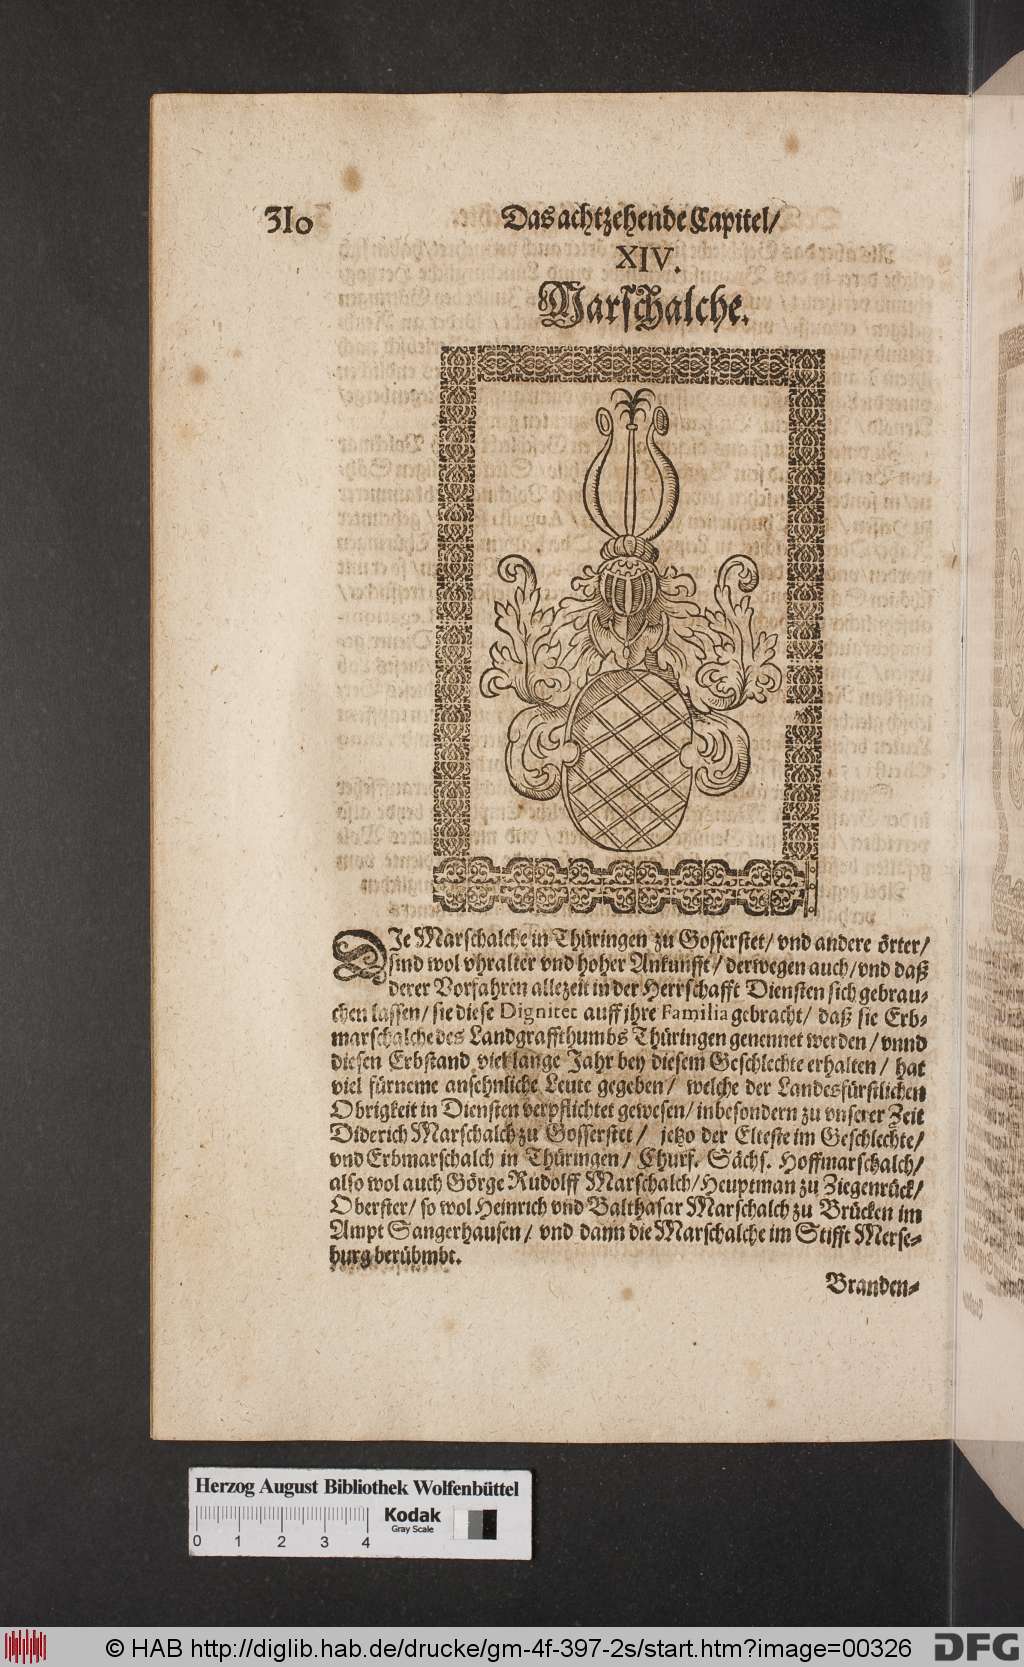 310
Das achtzehende Capitel/
XIV.
Marschalche.
DIe Marschalche in Thüringen zu Gosserstet/ vnd andere örter/
sind wol vhralter vnd hoher Ankunfft/ derwegen auch/ vnd daß
derer Vorfahren allezeit in der Herrschafft Diensten sich gebrau-
chen lassen/ sie diese Dignitet auff jhre Familia gebracht/ daß sie Erb-
marschalche des Landgraffthumbs Thüringen genennet werden/ vnnd
diesen Erbstand viel lange Jahr bey diesem Geschlechte erhalten/ hat
viel fürneme ansehnliche Leute gegeben/ welche der Landesfürstlichen
Obrigkeit in Diensten verpflichtet gewesen/ inbesondern zu vnserer Zeit
Diderich Marschalch zu Gosserstet/ jetzo der Elteste im Geschlechte/
vnd Erbmarschalch in Thüringen/ Churf. Sächs. Hoffmarschalch/
also wol auch Görge Rudolff Marschalch/ Heuptman zu Ziegenrück/
Oberster/ so wol Heinrich vnd Balthasar Marschalch zu Brücken im
Ampt Sangerhausen/ vnd dann die Marschalche im Stifft Merse-
burg berühmbt.
Branden-
Herzog August Bibliothek Wolfenbüttel
0 1 2 3 4
Kodak
Gray Scale
© HAB http://diglib.hab.de/drucke/gm-4f-397-2s/start.htm?image=00326
DFG